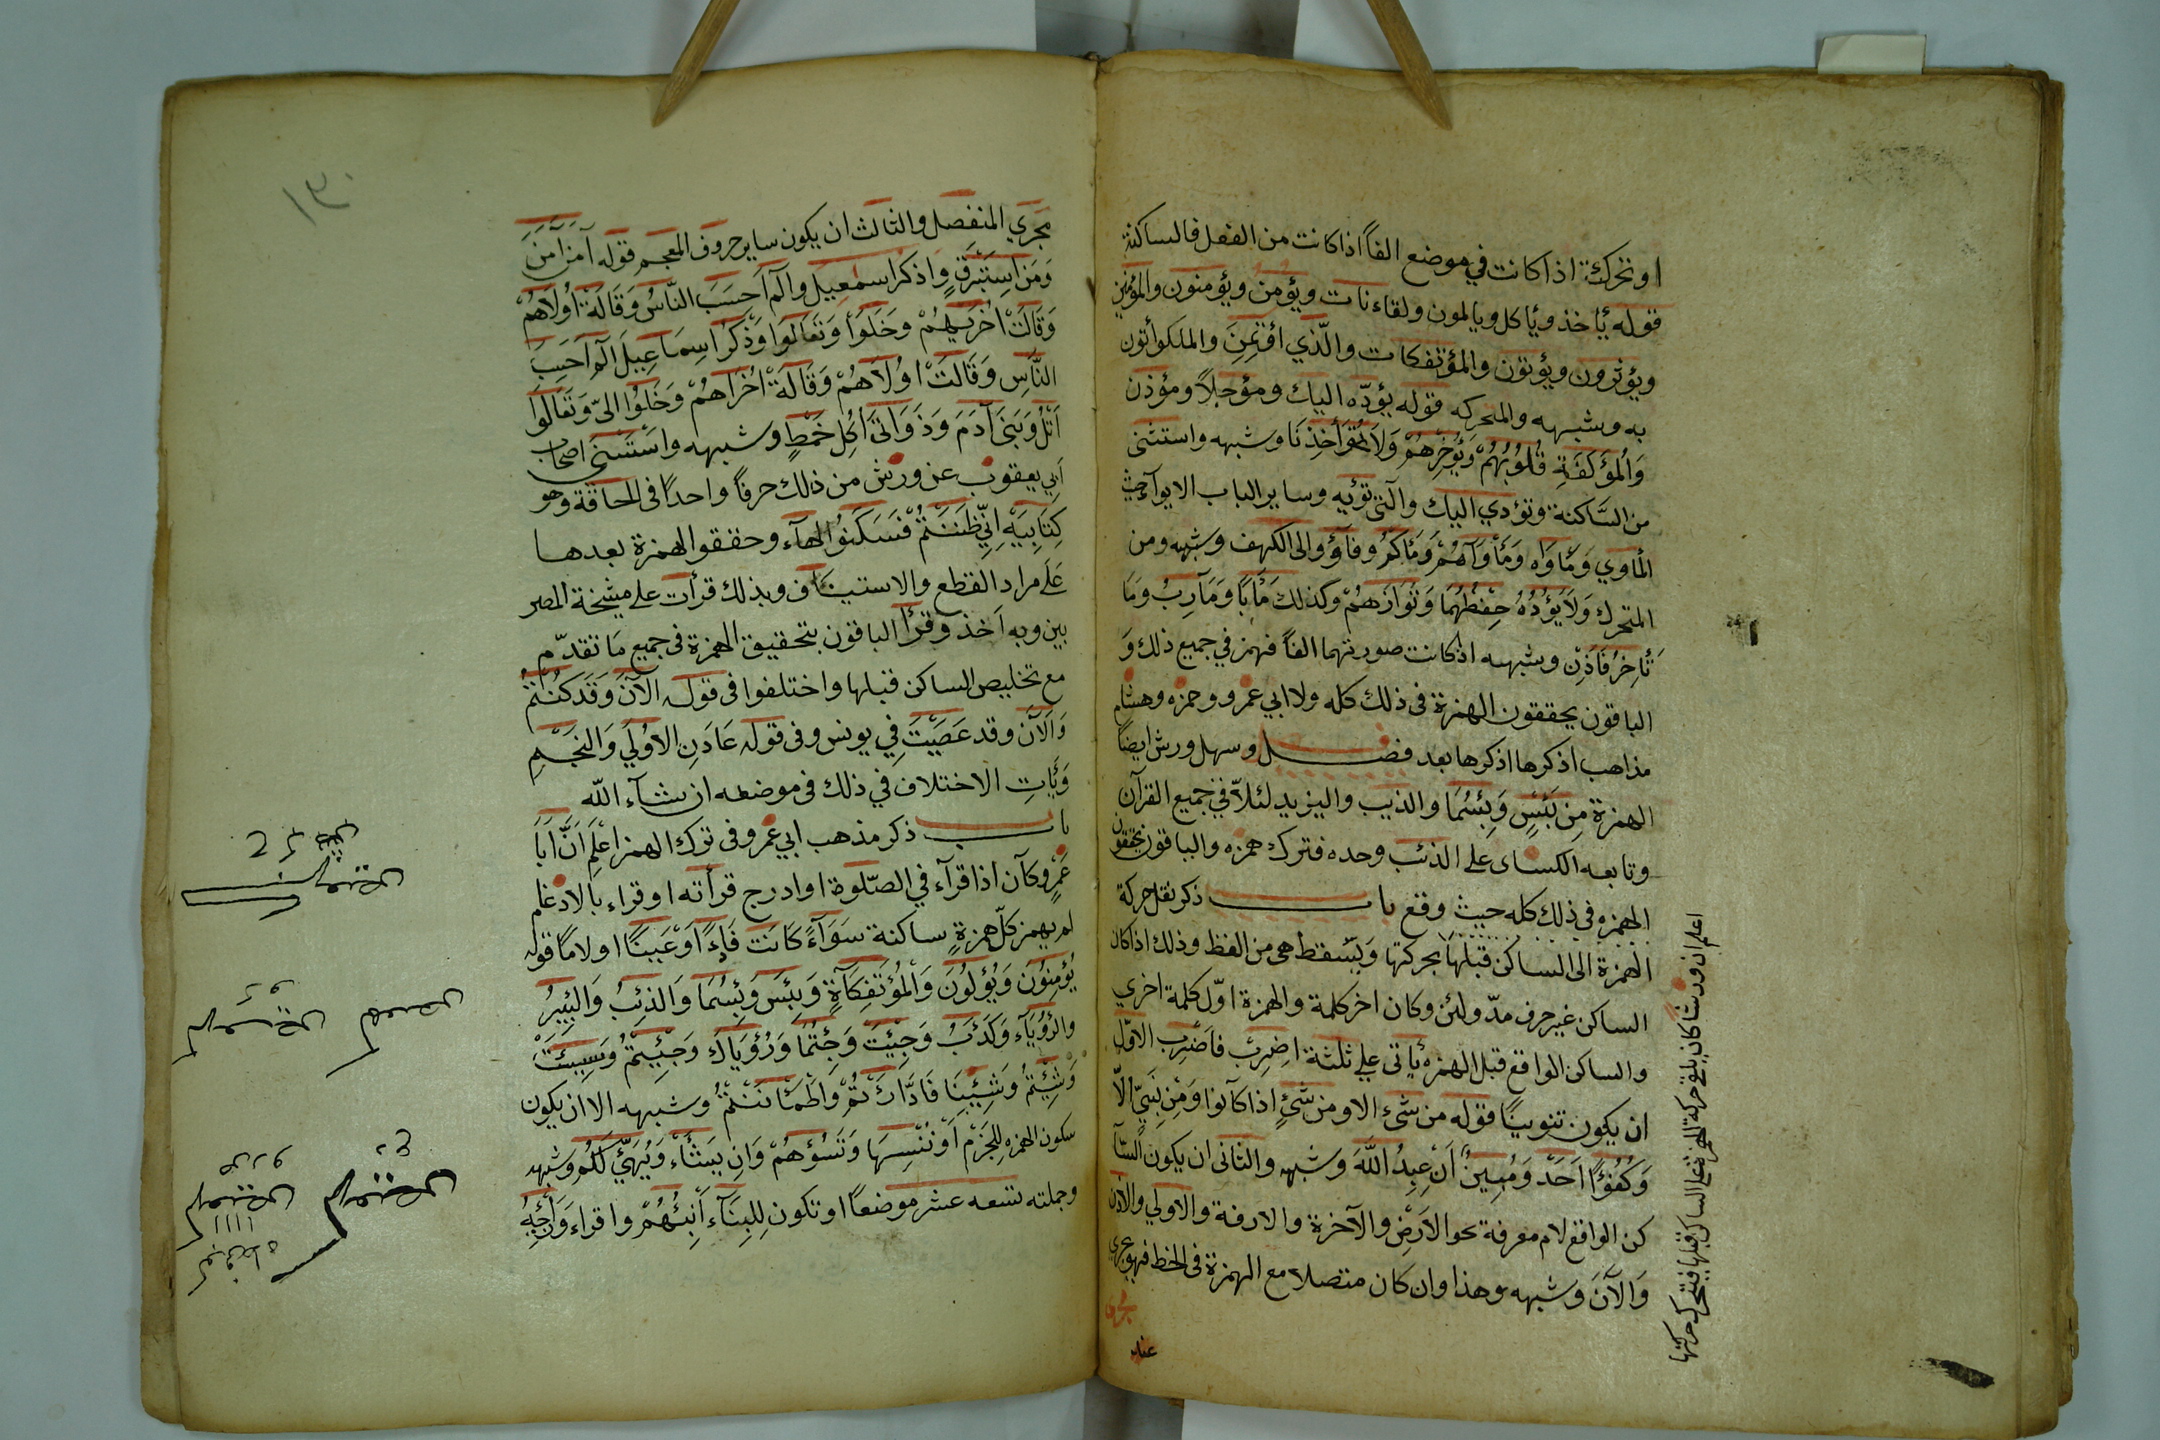 او تحركت اذا كانت في موضع الفاً اذا كانت من الفعل فالساكنة
قوله يأخذ ويأكل ويالمون ولقاءنات ويؤمن ويؤمنون والمؤمنين
ويؤثرون ويؤتون والمؤتفكات والّذي اؤتمن والملكوأتون
به وشبهه والمتحركه قوله يؤدّه اليك ومؤجلاً ومؤذن
وَالْمؤَلَفَةِ قُلُوبُهُمْ وَيُؤَخِّرهُمْ وَلَا تُؤَاخِذنَا وشبهه واستثنى
من السَّاكنة وتؤدي اليك والّتى تؤيه وساير الباب الايوآء حيث
المأوي وَمَأوَاه وَمَأْوَاهُمْ وَمَأكمُ وفأوٗ والى الكهف وشبهه ومن
المتحرك وَلَا يَؤُدُهُ حِفْظُهُمَا وَتَؤزهُمْ وكذلك مَآبًا وَمَآرِبُ وَمَا
تَأخِرُ فَاَذِّن وشبهه اذ كانت صورتهما الفاً فهمز في جميع ذلك وَ
الباقون يحققون الهمزة في ذلك كله ولابي عمرو وحمزه وهشام
مذاهب اذكرها اذكرها بعد فصل وسهل ورش ايضاً
الهمزة مِن بَئِسٍ وَبِئْسُمَا والذيب والبئر يد لئلاّ في جميع القرآن
وتابعه الكساى على الذئب وحده فترك همزه والباقون يحققون
الهمزه فى ذلك كله حيث وقع باب ذكر نقل حركة
الهمزة الى الساكن قبلها بحركتها وَيَسقط هى من الفظ وذلك اذا كان
الساكن غير حرف مدّ ولين وكان اخر كلمة والهمزة اوّل كلمة اخري
والساكن الواقع قبل الهمزه يأتى على ثلثة اضرب فاَضرب الاوّل
ان يكون تنوينًا قوله من شىء الا ومن شىءٍ اذا كانوا وَمِن نَبيٍّ الاّ
وَكُفُوًا اَحَدْ وَمُبِينٌ اَنْ عْبِدُ اللهَ وشبهه والثانى ان يكون السَّا
كن الواقع لام معرفة نحو الاَرْضِ والآخرة والازفة والاولي والاذن
وَالآنَ وَشبهه وهذا وان كان متصلا مع الهمزة فى الخط فهو يجري
مجرى
عند
اعلم ان ورشا كان يلقى حركة الهمزة على الساكن قبلها فيتحرك بحركتها
١٣٠
مجَري المنفصل والثالث ان يكون ساير حروف المعجم قوله آ مَنْ آمَنَ
وَمَن اِستَبْرَقٍ وَاذكر اسمعِيل والٓم اَحسَبَ النَّاسُ وَقَالَة اُولَاهُمْ
وَقَالَتْ اُخْرَيهُمْ وخَلَوْا وَتَعَالَوْا وَذْكُرْ اِسمَاعِيلَ الٓم اَحَسِبَ
النَّاسِ وَقَالَتْ اُوْلَاهُمْ وَقَالَةْ اُخْرَاهُمْ وَخَلَوْا الىّ وَتَعَالَوْا
اَتْلُ وَبَنىَ آدَمَ وَذَوَاتَىْ اُكلِ خَمْطٍ وشبهه وِاسْتَثنى اصحاب
اَبي يعقوب عن ورش من ذلك حرفاً واحدًا فى الحاقة وهو
كِتَابِيَهْ اِنِّي ظَنَنتُمْ فَسَكَنوُا الهآء وحققوا الهمزة بعدها
عَلَى مراد القطع والاستيناف وبذلك قرأت على مشيخة المصر
يين وبه آخذ وقرأ الباقون بتحقيق الهمزة فى جميع مَا تقدّم
مع تخليص الساكن قبلها واختلفوا فى قوله الآنَ وَقَدكُنْتُمْ
وَآلَآنَ وقد عَصَيْتَ فِي يونس وفى قوله عَادَنِ الاُوُلَي وَالنجْمِ
وَيَأتِ الاختلاف في ذلك فى موضعه ان شآء الله
باب ذكر مذهب ابي عمرو فى ترك الهمز اعلَم اَنَّ اَبَا
عَمْرٍو كاَن اذا قرآء في الصّلوة او ادرج قرأته او قراء بالادغام
لم يهمز كلّ همزةٍ ساكنة سَوَآءً كانت فَاءً اَوْ عَيْنًا اولامًا قوله
يُؤمِنُونَ وَيُؤلُونَ وَالْمُؤتَفِكَاةِ وَبِئسَ وَبِئسُمَا وَالذِئبُ وَالبِئِيرُ
والرُؤيَاء وَكَدَئبُ وَجِئتَ وَجِئتُمَا وَرُؤيَاكَ وَجِئتِمْ وَسِيئتْ
وَشِئْتُمْ وَشِئْيِنَا فَادَّارَئتُمْ وِاطْمَئنَنْتُمْ وشبهه الا ان يكون
سكون الهمزه لِلجَزْمِ اَوْ نُنْسِهَا وَتَسُؤهُمْ وَانِ يشَأْ وَيُهَيِّئْ لَكُمْ وشبهه
وجملته تسعه عشر موضعاً او تكون لِلبِنَآء اَنِبئْهُمْ واقراء وَاَرْجِهْ